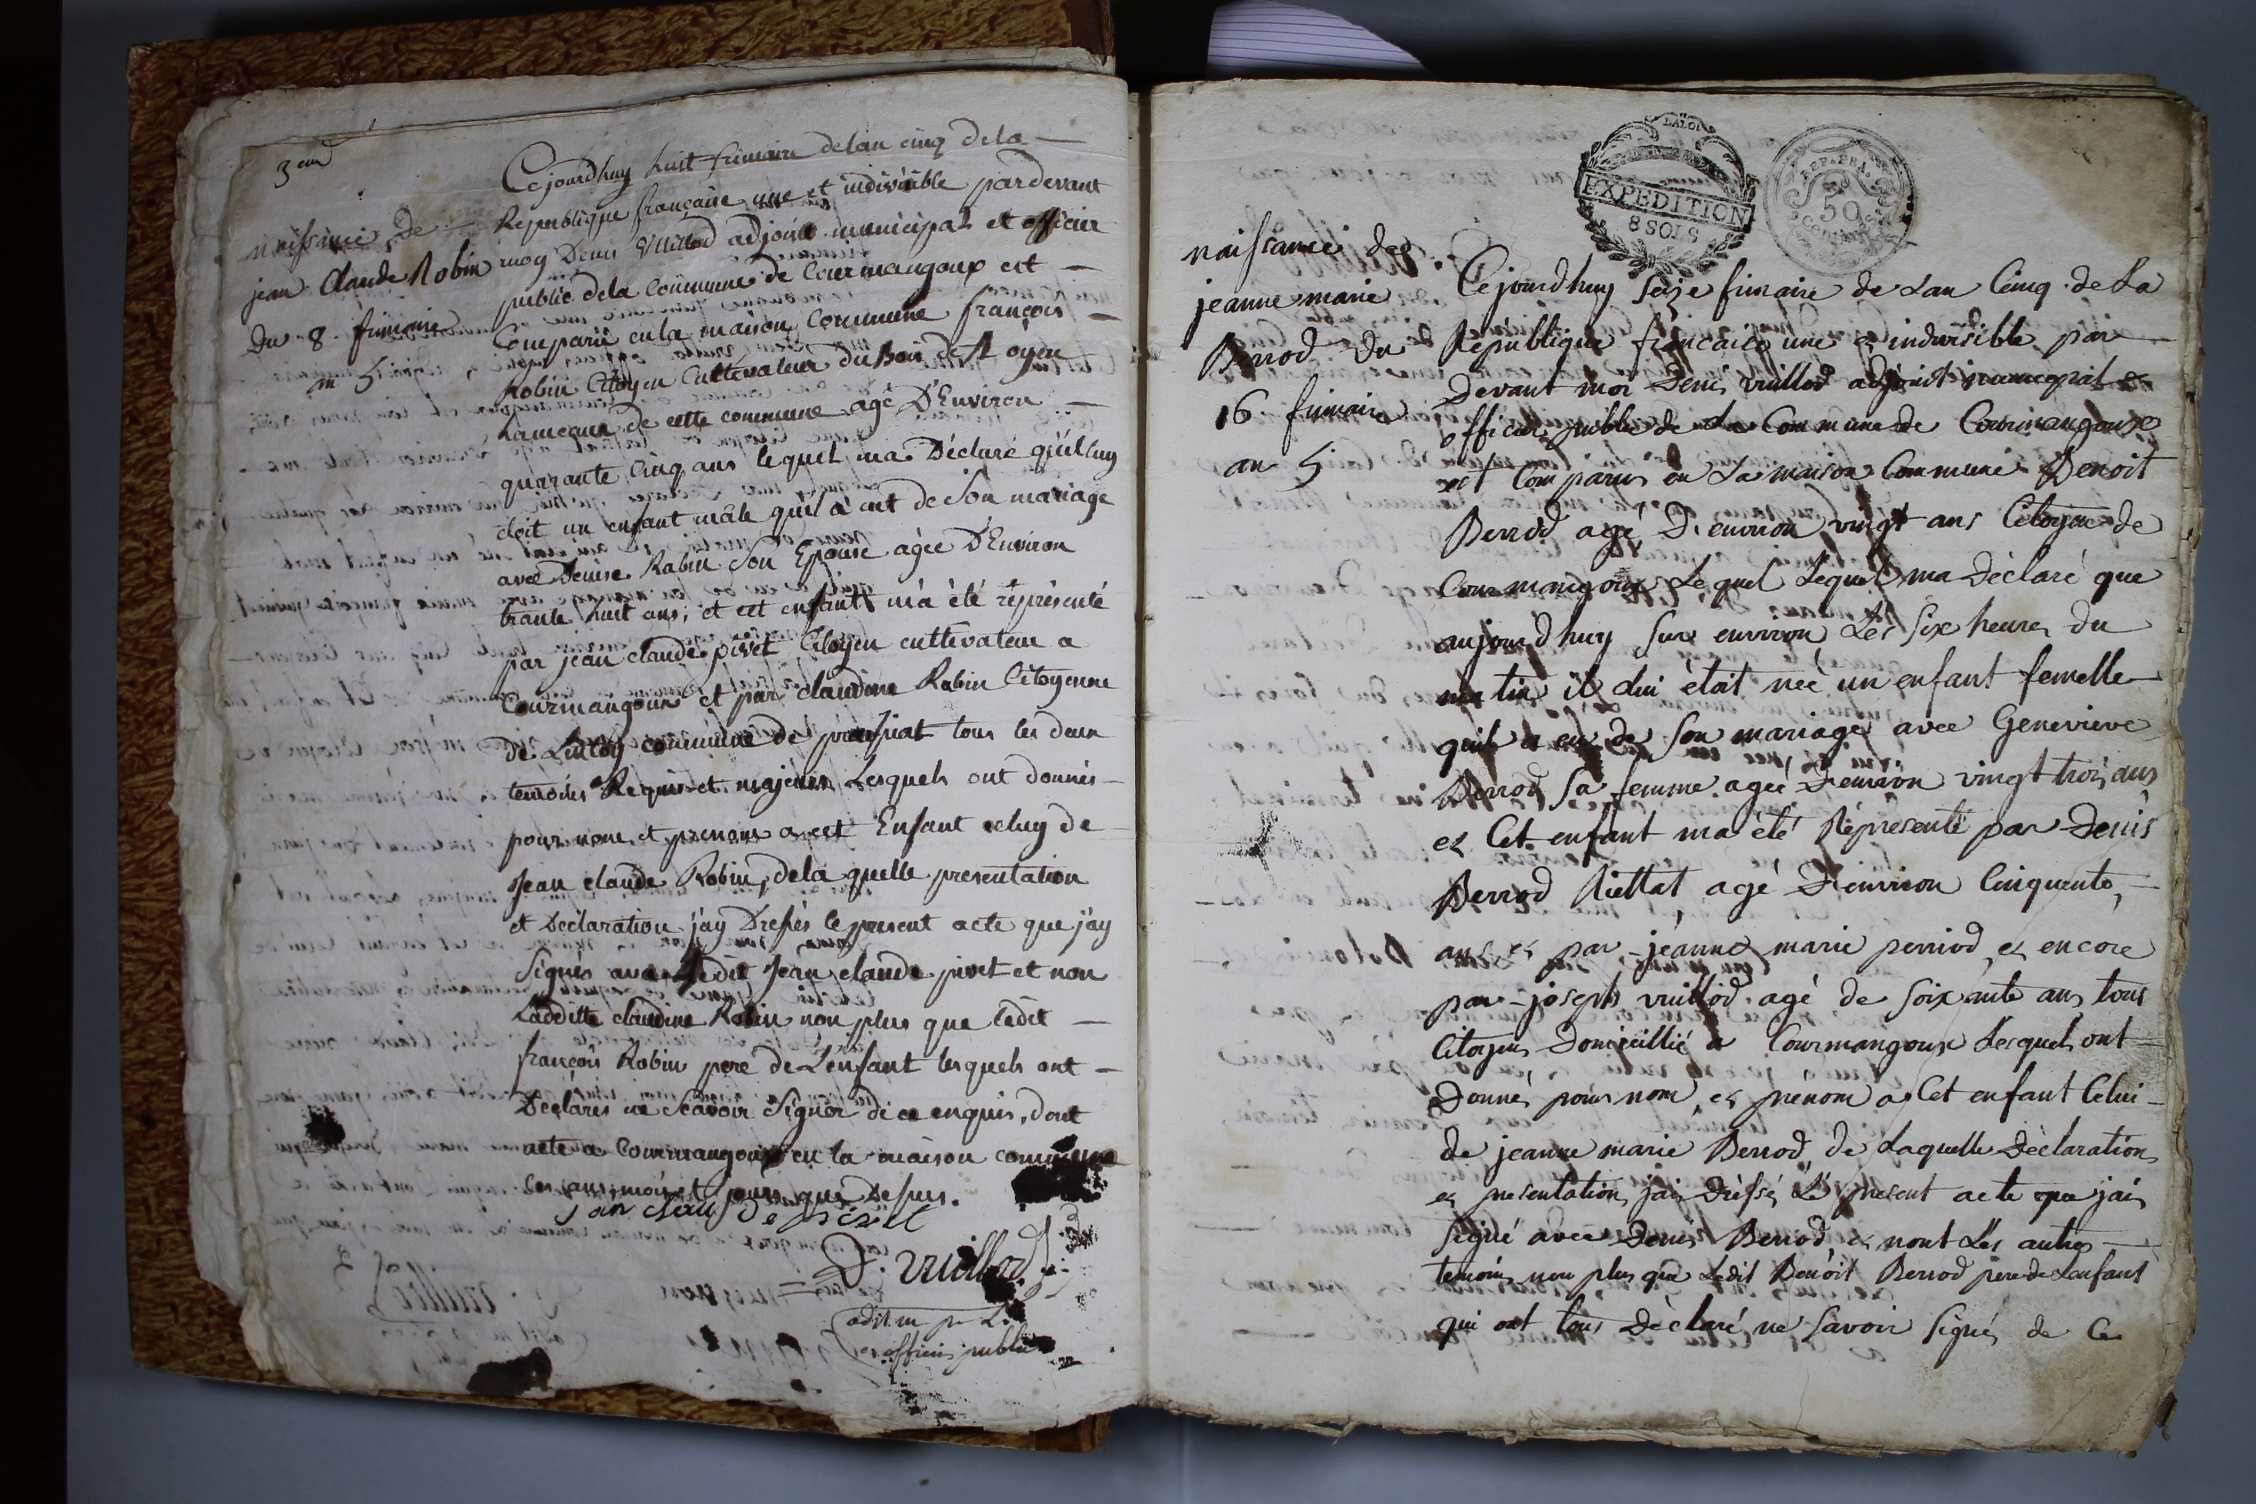 3eme
naissance de
jean Claude Robin
du 8 frimaire
an 5
Cejourdhuy huit frimaire delan cinq dela
Republique française une et indivisible pardevant
moy Denis Vuillod adjoint municipal et officier
public dela commune de Courmangoux est
Comparu en la maison Commune françois
Robin Citoyen Cultivateur du Bois de St oyen
hameau de cette commune agé D'Environ
quarante Cinq ans lequel ma Déclaré qu'il luy
étoit un enfant mâle qu'il à eut de Son mariage
avec Denise Rabin Son Epouse agée D'Environ
trante huit ans; et cet enfant m'a été représenté
par jean claude pivet Citoyen cultivateur a
Courmangoux et par claudine Rabin Citoyenne
De commune de pressiat tous les deux
temoins Requis et majeurs Lesquels ont donnés
pour nom et prenom a cet Enfant celuy de
Jean claude Robin, dela quelle presentation
et Declaration j'ay Dressés le present acte que j'ay
Signés avec Ledit Jean claude pivet et non
Laditte claudine Robin non plus que ledit
françois Robin pere de L'enfant lesquels ont
Déclarés ne Scavoir Signer de ce enquis, dont
acte a Courmangoux en la maison commune
Les ans, mois et jours que Dessus.
D. vuillod
officier public
LALOI
EXPEDITION
8 SOLS
REP. FRA.
50
naissance de
jeanne marie
Berrod du
16 frimaire
an 5
Cejourdhuy Seize frimaire de Lan Cinq de La
République française une et indivisible par
Devant moi Denis vuillod adjoint municipal et
officier public de La Commune de Courmangoux
est Comparus en La maison Commune Benoit
Berrod agé D'environ vingt ans Citoyen de
Courmangoux Lequel Lequel ma Déclaré que
aujourdhuy Sur environ Les Six heures du
matin il lui étoit née un enfant femelle
quil a eu de Son mariage avec Genevieve
Berrod Sa femme agée D'environ vingt trois ans
et Cet enfant ma été Répresenté par Denis
Berrod Riettat agé D'environ Cinquente
ans et par jeanne marie perriod et encore
par joseph vuillod agé de Soixante ans tous
Citoyens Domicillié a Courmangoux Lesquels ont
Donnés pour nom et prénom a Cet enfant Celui
de jeanne marie Berrod de Laquelle Déclaration
et presentation jai Dréssé Le present acte que jai
Signé avec Denis Berrod et nont Les autres
temoins non plus que Ledit Benoit Berrod pere de Lenfant
qui ont tous Déclaré ne Savoir Signés de Ce